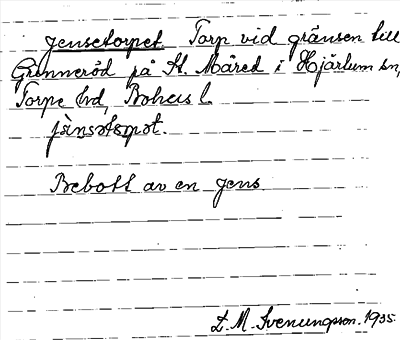 Jensetorpet. Torp vid gränsen till
Grinneröd på St. Måred i Hjärtum sn,
Torpe hd, Bohus l.
jènsətɔrpət.
Bebott av en Jens.
L. M. Svenungsson. 1935.